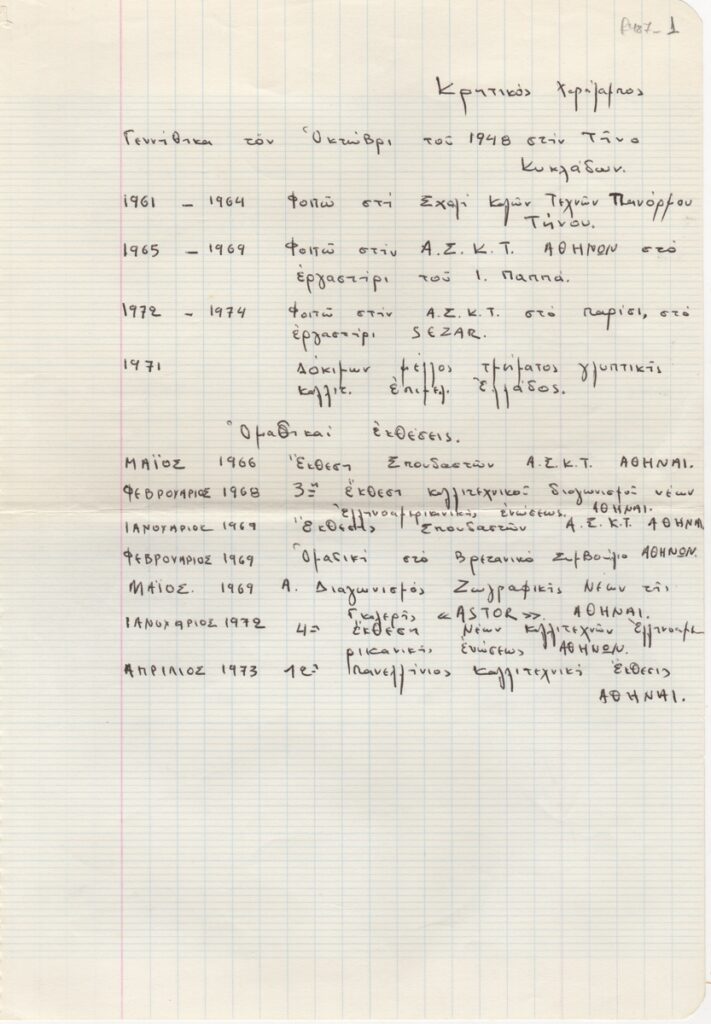 Κρητικός Χαράλαμπος
Γεννήθηκα τόν Ὀκτώβρι τοῦ 1948 στήν Τῆνο
Κυκλάδων.
1961 – 1964 Φοιτῶ στή Σχολή Καλῶν Τεχνῶν Πανόρμου
Τήνου.
1965 – 1969 Φοιτῶ στήν Α.Σ.Κ.Τ. ΑΘΗΝΩΝ στό
ἐργαστήρι τοῦ Ι. Παππᾶ.
1972 – 1974 Φοιτῶ στήν Α.Σ.Κ.Τ. στό Παρίσι, στό
ἐργαστήρι SEZAR.
1971 Δόκιμων μέλος τμήματος γλυπτικῆς
καλλιτ. ἐπιμελ. Ἑλλάδος.
Ὁμαδικαί ἐκθέσεις.
ΜΑΪΟΣ 1966 Ἔκθεση Σπουδαστῶν Α.Σ.Κ.Τ. ΑΘΗΝΑΙ.
ΦΕΒΡΟΥΑΡΙΟΣ 1968 3η ἔκθεση καλλιτεχνικοῦ διαγωνισμοῦ νέων
Ἑλληνοαμερικανικῆς ἑνώσεως. ΑΘΗΝΑΙ.
ΙΑΝΟΥΑΡΙΟΣ 1969 Ἔκθεσις Σπουδαστῶν Α.Σ.Κ.Τ. ΑΘΗΝΑ
ΦΕΒΡΟΥΑΡΙΟΣ 1969 Ὁμαδική στό Βρετανικό Συμβούλιο ΑΘΗΝΩΝ.
ΜΑΪΟΣ. 1969 Α. Διαγωνισμός Ζωγραφικῆς Νέων τῆς
Γκαλερῆς «ASTOR». ΑΘΗΝΑΙ.
ΙΑΝΟΥΑΡΙΟΣ 1972 4η ἔκθεση Νέων καλλιτεχνῶν Ἑλληνοαμε
ρικανικῆς ἑνώσεως ΑΘΗΝΩΝ.
ΑΠΡΙΛΙΟΣ 1973 12η Πανελλήνιος καλλιτεχνική ἔκθεσις
ΑΘΗΝΑΙ.